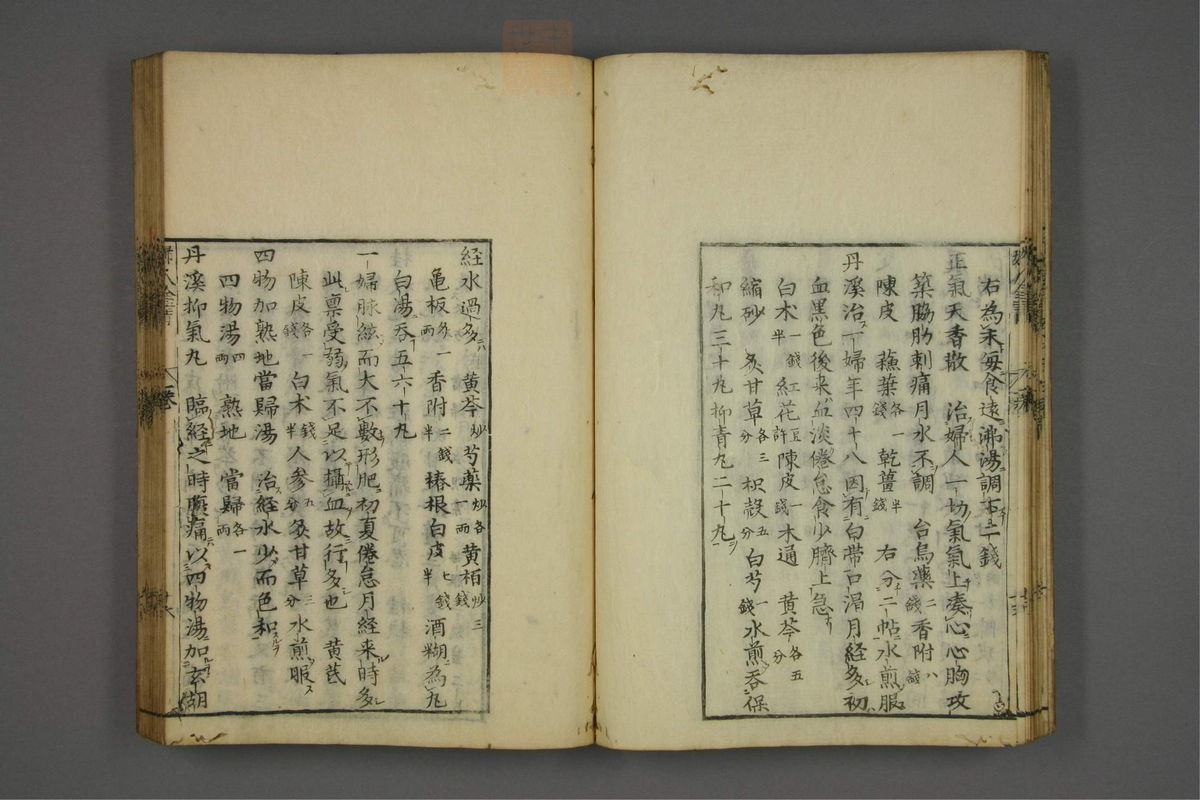 右為末每食遠沸湯調下二錢
正氣天香散　治婦人一切氣氣上湊心心胸攻
築脇肋刺痛月水不調　台烏藥二錢香附八錢
陳皮　蘓葉各一錢乾薑半錢　右分二帖水煎服
丹溪治一婦年四十八因有白帶口渴月經多初
血黒色後来血淡倦怠食少臍上急
白术一錢半紅花豆許陳皮一錢木通　黄芩各五分
縮砂　炙甘草各三分枳殻五分白芍一錢水煎吞保
和丸三十丸抑青丸二十丸
経水過多　黄芩炒芍藥炒各一兩黄栢炒三錢
亀板炙一兩香附二錢半椿根白皮七錢半酒糊為丸
白湯吞五六十丸
一婦脉絃而大不數形肥初夏倦怠月経来時多
此禀受弱氣不足以攝血故行多也　黄芪
陳皮各一錢白术錢半人参五分炙甘草三分水煎服
四物加熟地當歸湯　治経水少而色和
四物湯四兩　熟地　當歸各一兩
丹溪抑氣丸　臨経之時腰痛以四物湯加玄胡